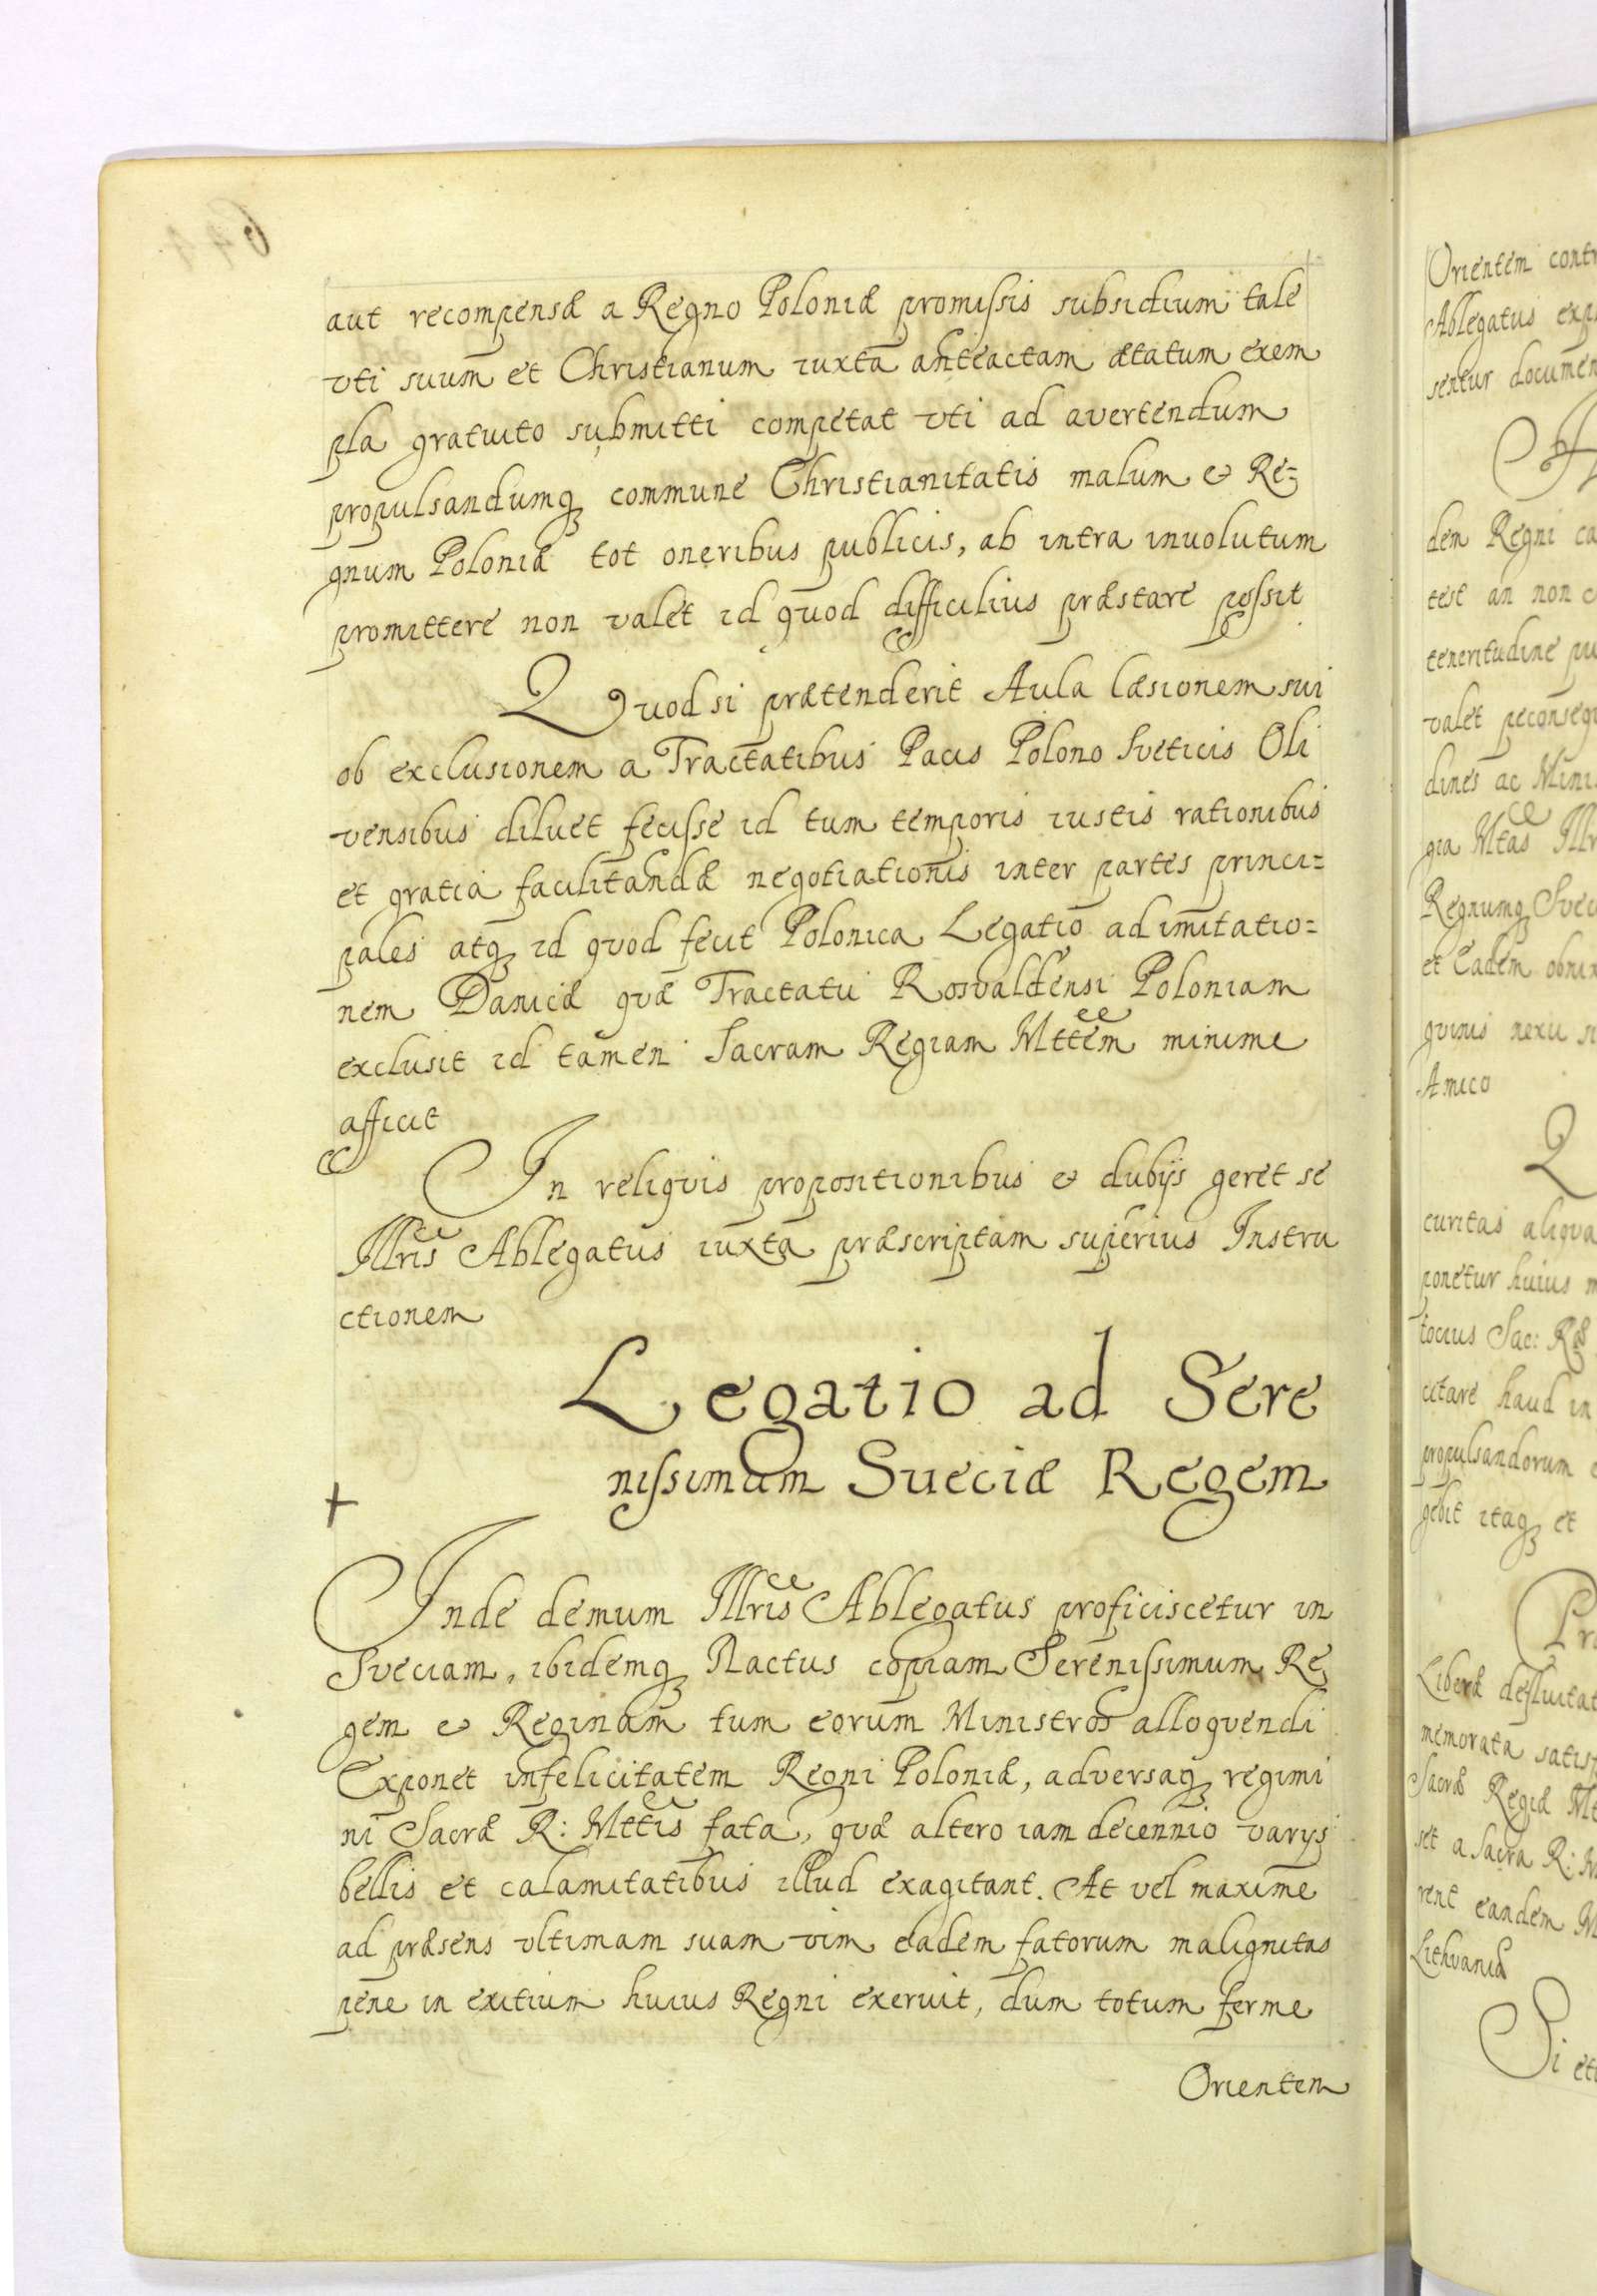 aut recompensæ a Regno Poloniæ promissis subsidium tale
vti suum et Christianum iuxta anteactam ætatum exem
pla gratuito submitti competat vti ad avertendum
propulsandumq commune Christianitatis malum & Re=
gnum Poloniæ tot oneribus publicis, ab intra inuolutum
promittere non valet id quod difficilius præstare possit
Quod si prætenderit Aula læsionem sui
ob exclusionem a Tractatibus Pacis Polono Sveticis Oli
vensibus diluet fecisse id tum temporis iustis rationibus
et gratia facilitandæ negotiationis inter partes princi=
pales atq id quod fecit Polonica Legatio ad imitatio=
nem Danicæ quæ Tractatu Rosvaldensi Poloniam
exclusit id tamen Sacram Regiam Mttem minime
afficit
In reliquis propositionibus & dubijs geret se
Illris Ablegatus iuxta præscriptam superius Instru
ctionem
Legatio ad Sere
nissimum Sueciæ Regem
+
Inde demum Illris Ablegatus proficiscetur in
Sveciam, ibidemq Nactus copiam Serenissimum Re
gem & Reginam tum eorum Ministros alloquendi
Exponet infelicitatem Regni Poloniæ, adversaq regimi
ni Sacræ R: Mttis fata, quæ altero iam decennio varijs
bellis et calamitatibus illud exagitant. At vel maxime
ad præsens vltimam suam vim eadem fatorum malignitas
pene in exitium huius Regni exeruit, dum totum ferme
Orientem
Orientem
Ablegatus
dem Regni
test an non
teneritudine
valet
dines ac
Regnumq
et eadem
Amico
curitas aliqua
ponetur huius
tocius Sac:
citare haud in
propulsandorum
gebit itaq et
memorata
Sacræ Regiæ
set a Sacra R:
rent eandem
Lithvaniæ
Si